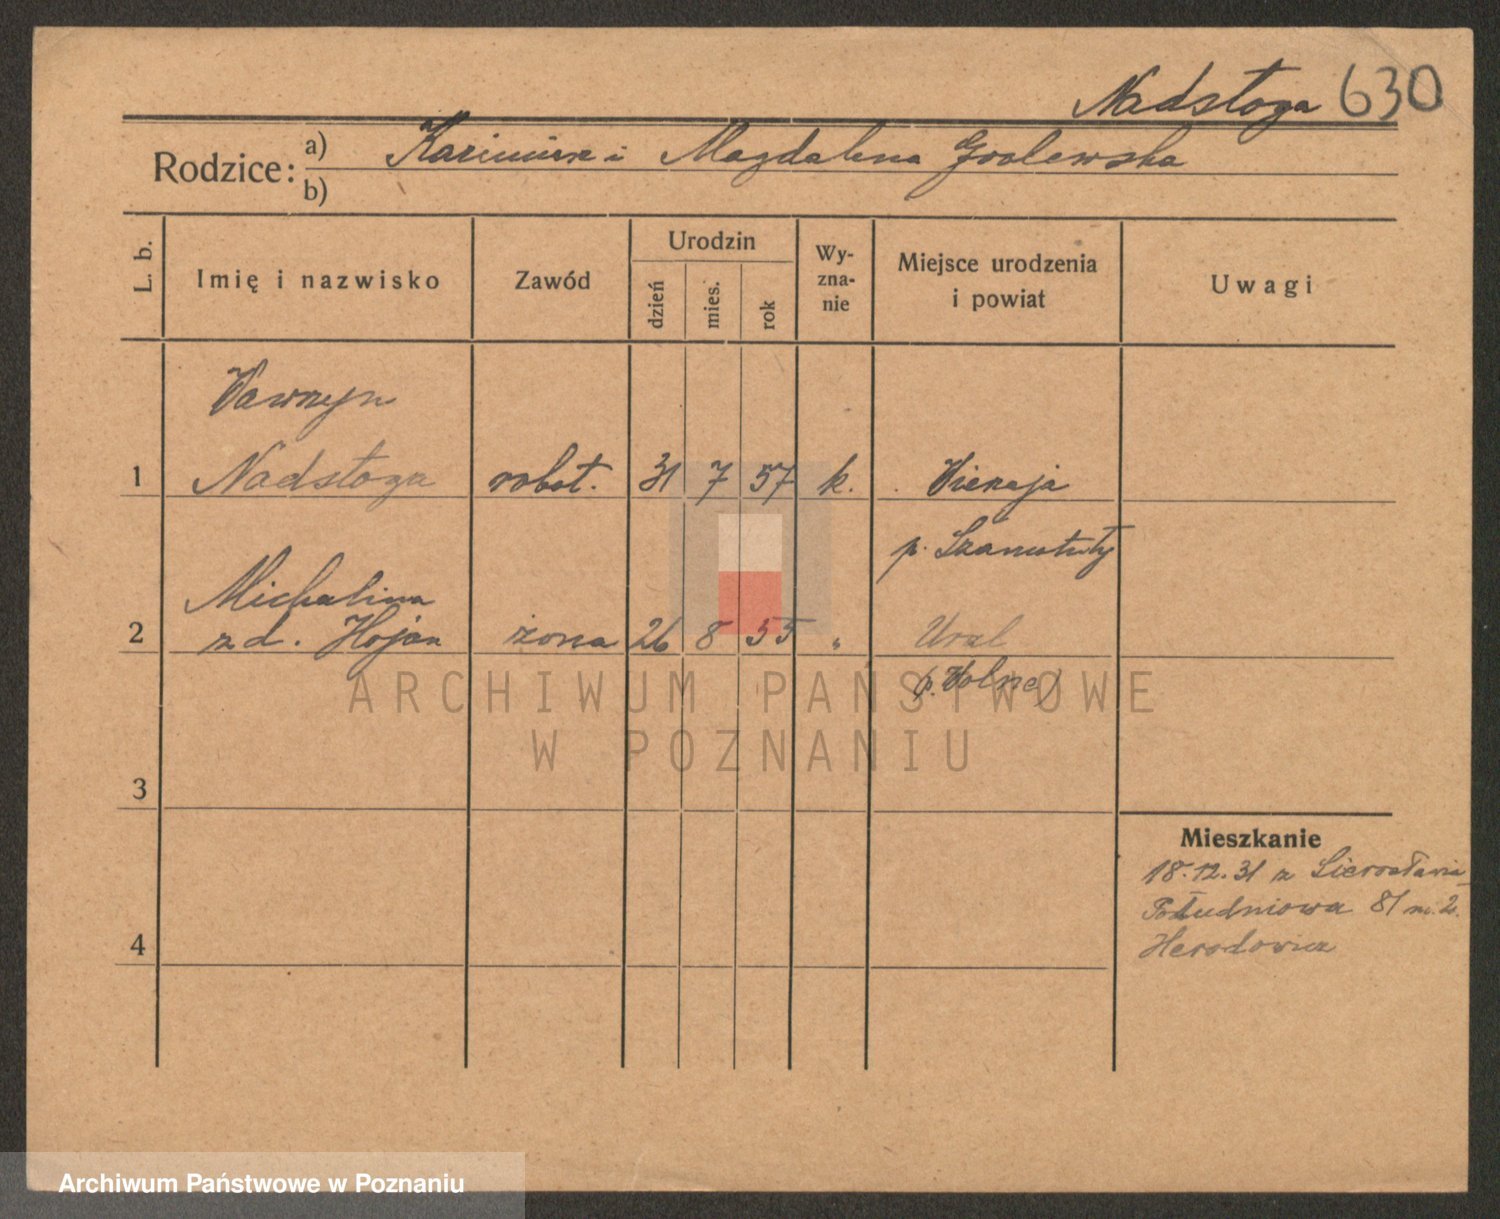 Nadstoga 630
Rodzice: a) Kazimierz i Magdalena Grolewska
b)
L. b. Imię i nazwisko Zawód Urodzin dzień mies. rok Wy-zna-nie Miejsce urodzenia i powiat Uwagi
Wawrzyn
1 Nadstoga robot. 31 7 57 k.
p. Szamotuły
Michalina
2 z d. Hojan żona 26 8 55 "
3
4
Mieszkanie
18.12.31 z Sierosławia
Południowa 81 m. 2.
ARCHIWUM PAŃSTWOWE
W POZNANIU
Archiwum Państwowe w Poznaniu